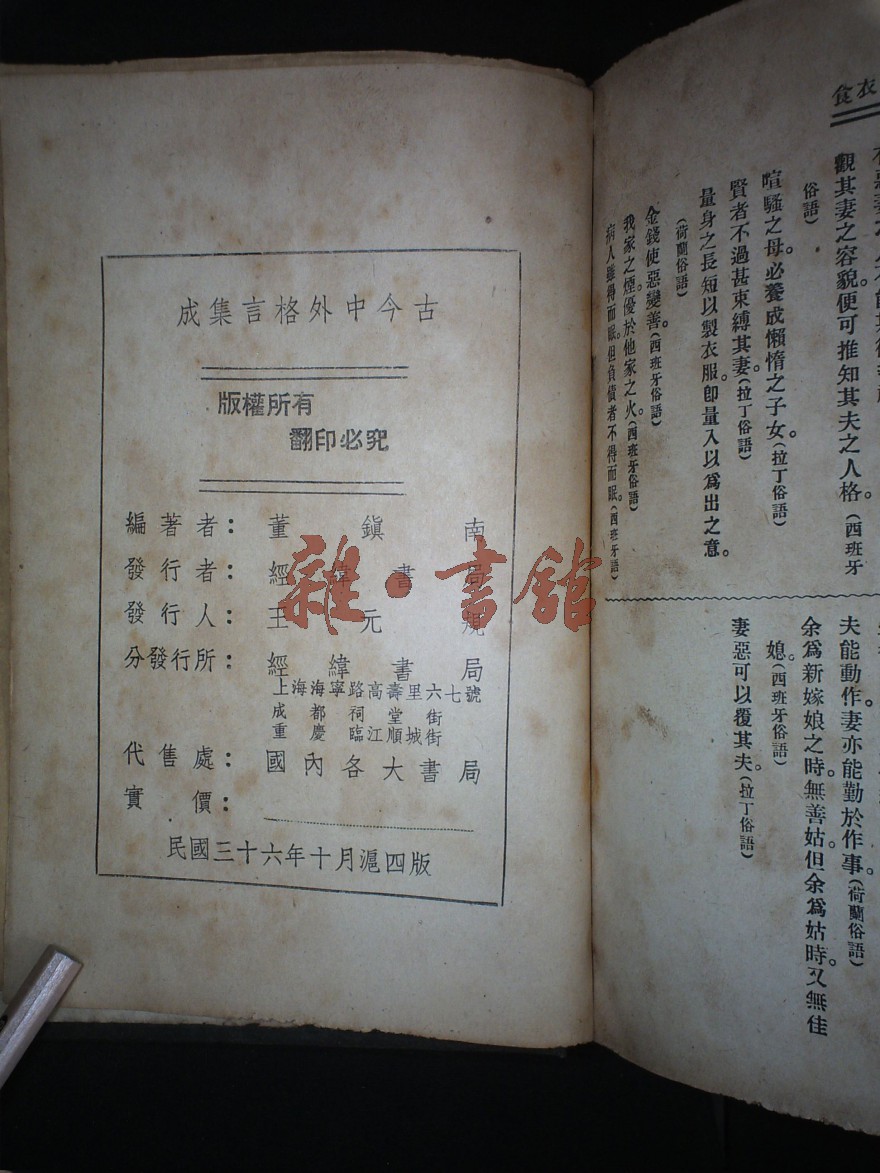 衣食
觀其妻之容貌。便可推知其夫之人格。(西班牙
俗語)
喧騷之母。必養成懶惰之子女。(拉丁俗語)
賢者不過甚束縛其妻。(拉丁俗語)
量身之長短以製衣服。卽量入以爲出之意。
(荷蘭俗語)
金錢使惡變善。(西班牙俗語)
我家之煙。優於他家之火。(西班牙俗語)
病人雖得而眠。但負債者不得而眠。(西班牙語)
夫能動作。妻亦能勤於作事。(荷蘭俗語)
余爲新嫁娘之時。無善姑。但余爲姑時。又無佳
媳。(西班牙俗語)
妻惡可以覆其夫。(拉丁俗語)
古今中外格言集成
版權所有
翻印必究
編著者：董鎭南
發行者：經緯書局
發行人：王元規
分發行所：經緯書局
上海海寧路高壽里六七號
成都祠堂街
重慶臨江順城街
代售處：國內各大書局
實價：
民國三十六年十月滬四版
雜·書館